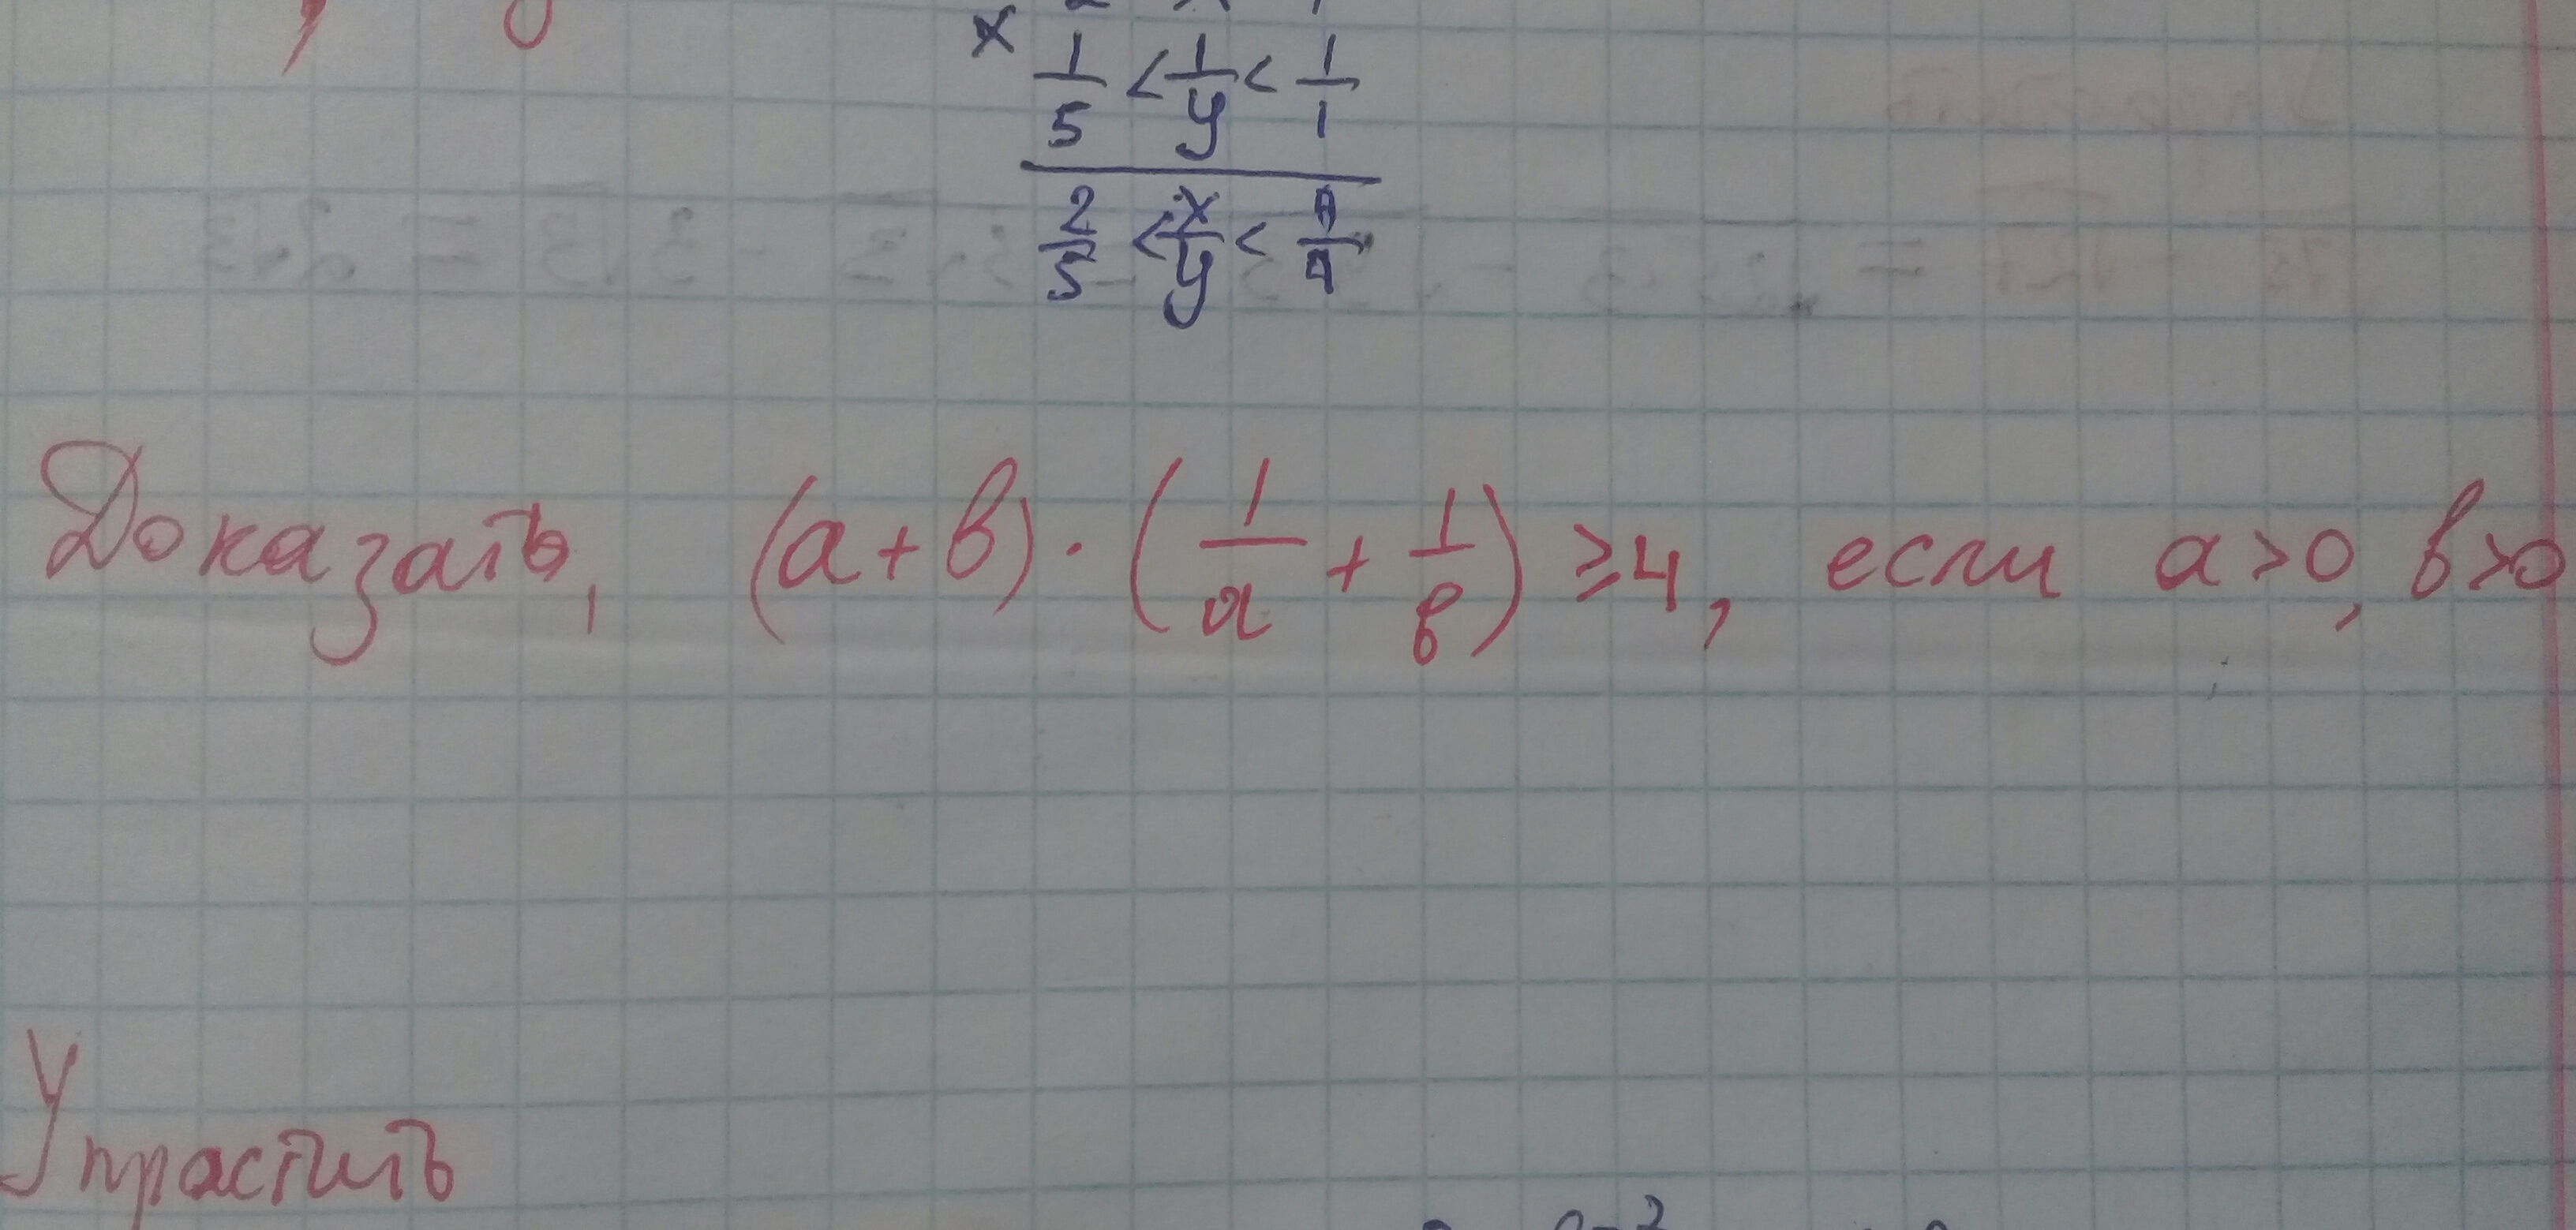 x 1/5 < 1/y < 1/1
2/5 < x/y <
Доказать, (a+b)·(1/a + 1/b) ≥ 4, если a>0, b>0
Упрастить